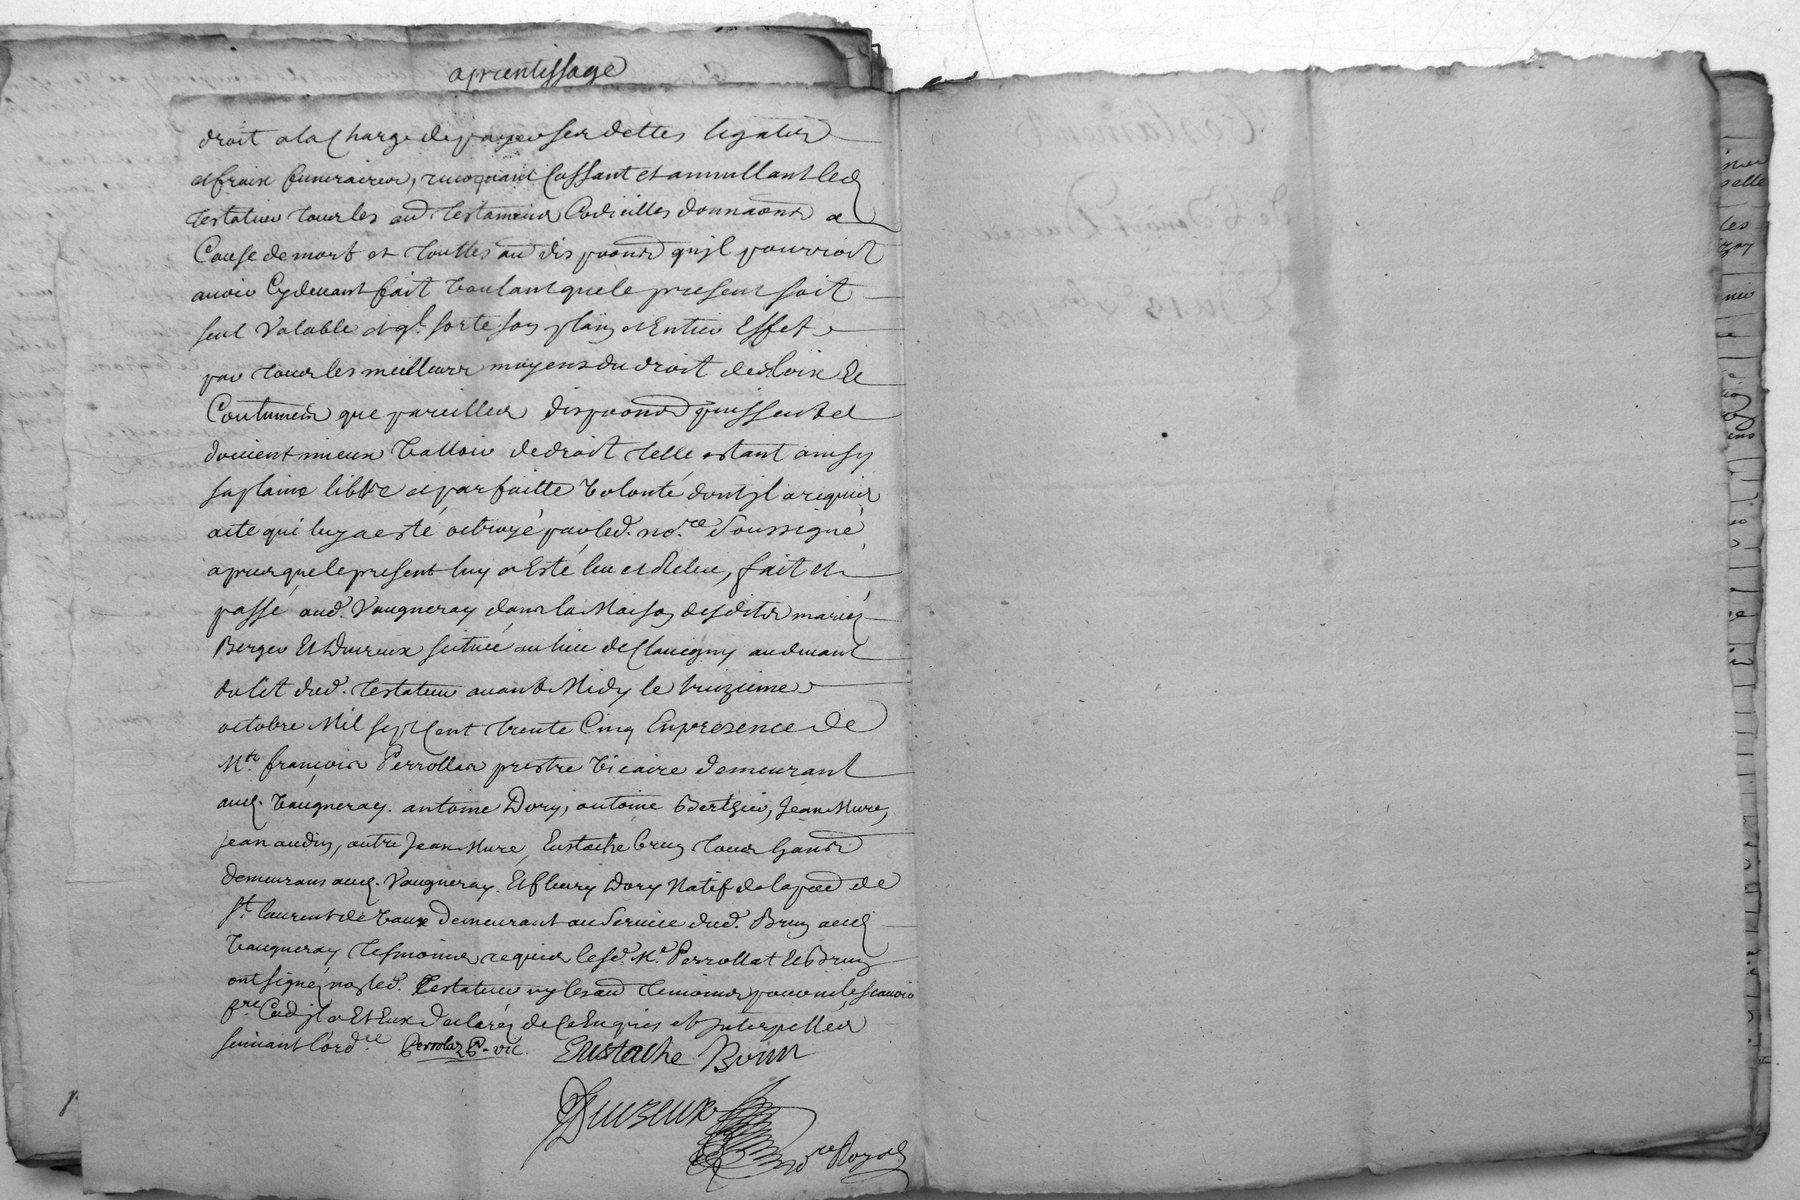 aprentissage
droit a la Charge de payer ses dettes legats
et fraix funeraires, revoquant Cassant et annullant led.
testateur tous les aud. testamens Codicilles donnaons a
Cause de mort et touttes au. dispoons qu'jl pourroit
avoir Cydevant fait voulant que le present soit
seul valable et ql. sorte son plain et Entier Effet
par tous les meilleurs moyens du droit des Loix Et
Coutumes que pareilles dispoons puissent et
doivent mieux valloir de droit telle estant ainsy
sa plaine libre et parfaitte volonté dont jl a requis
acte qui luy a esté octroyé par led. no.re soussigné
apres que le present luy a Esté leu et Releu, fait et
passé aud. Vaugneray dans la Maison desdits mariés
Berger Et Duvreux scituée au lieu de Clavigny audevant
du lit dud. testateur avant Midy le treizieme
octobre Mil sept Cent trente Cinq En presence de
Mre. francois Perrollas prestre vicaire demeurant
aud. Vaugneray. antoine Dory, antoine Berthier, Jean Mure,
Jean audin, autre Jean Mure, Eustache brun tous hans
demeurans aud. Vaugneray. Et fleury Dory Natif de la psse de
St. laurent de Vaux demeurant au service dud. Brun aud.
Vaugneray tesmoins requis lesd. Mr. Perrollat Et Brun
ont signé, non led. testateur ny les au. temoins pour ne le scavoir
fre. Cedjl a Et Eux declarés de Ce Enquis et Interpellés
suivant l'ord.ce Perrolaz P. vic. Eustache Brun
no.re Royal